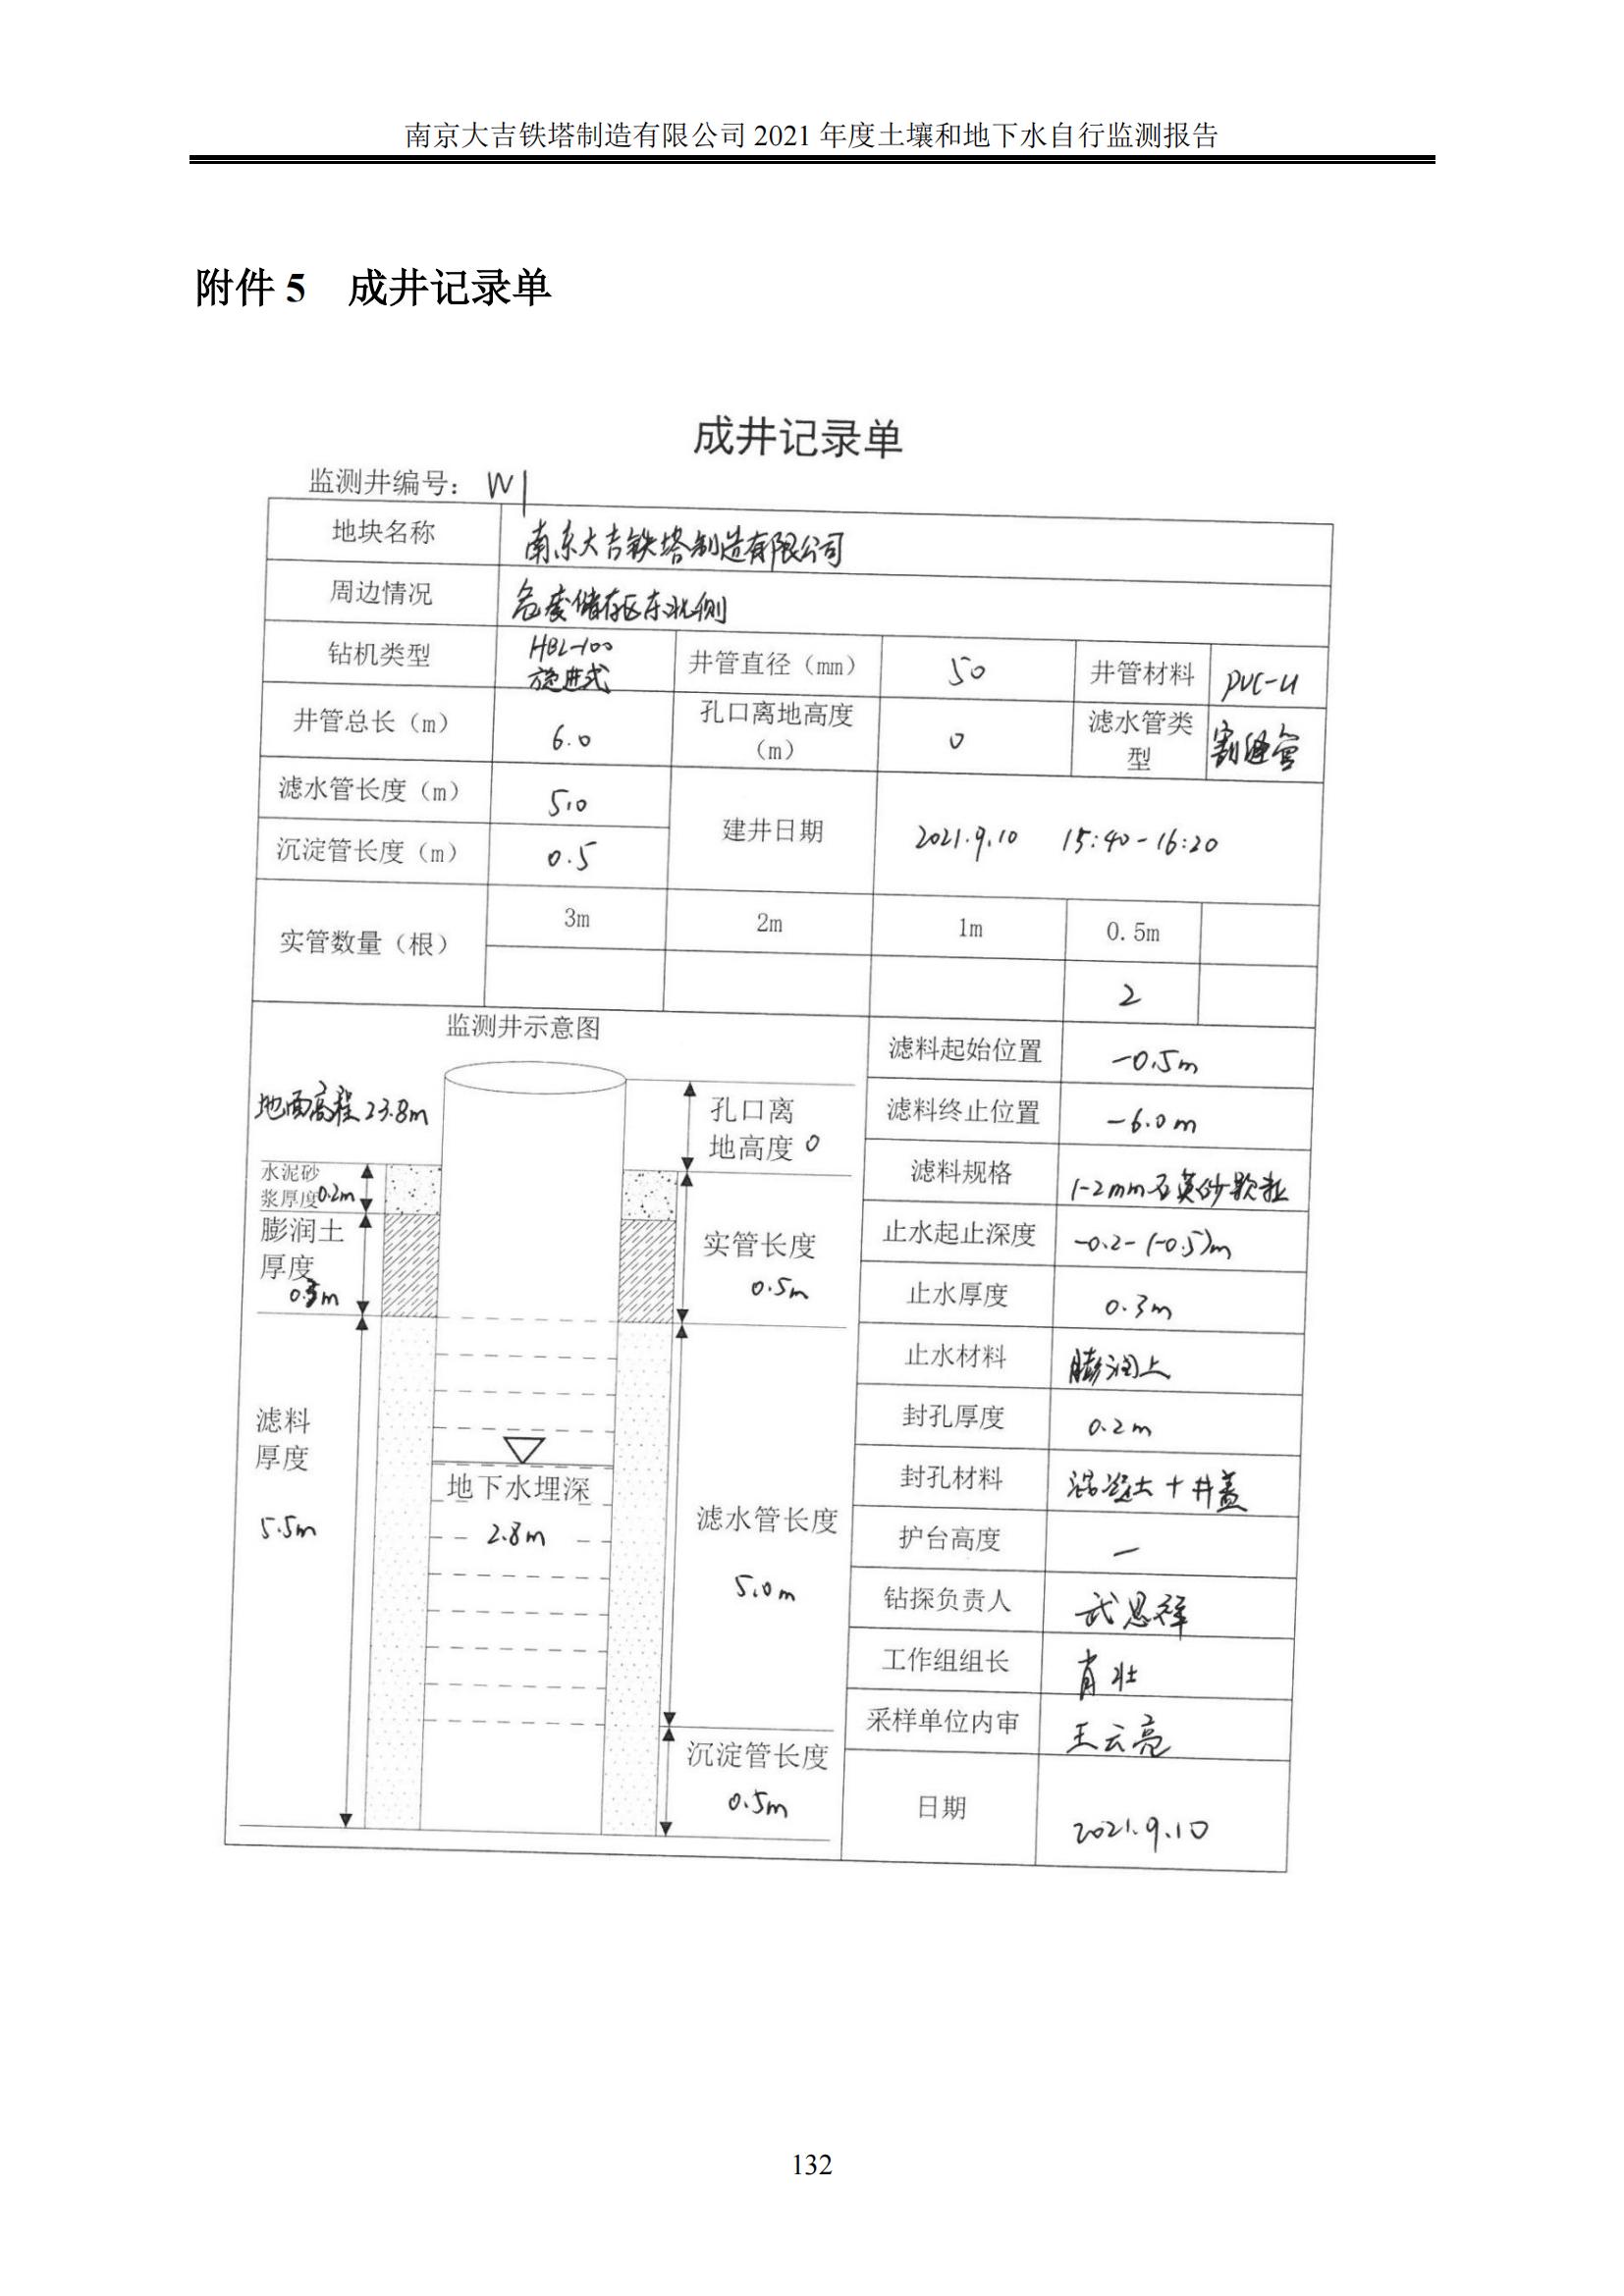 南京大吉铁塔制造有限公司 2021 年度土壤和地下水自行监测报告
附件 5 成井记录单
成井记录单
监测井编号： W1
地块名称 南京大吉铁塔制造有限公司
周边情况 危废储存区东北侧
钻机类型 HBL-100 旋进式 井管直径（mm） 50 井管材料 PVC-U
井管总长（m） 6.0 孔口离地高度（m） 0 滤水管类型 割缝管
滤水管长度（m） 5.0
建井日期 2021.9.10 15:40-16:20
沉淀管长度（m） 0.5
实管数量（根） 3m 2m 1m 0.5m
2
监测井示意图
地面高程23.8m
孔口离
地高度 0
水泥砂
浆厚度0.2m
膨润土
厚度
0.3m
实管长度
0.5m
滤料
厚度
5.5m
地下水埋深
2.8m
滤水管长度
5.0m
沉淀管长度
0.5m
滤料起始位置 -0.5m
滤料终止位置 -6.0m
滤料规格 1-2mm石英砂颗粒
止水起止深度 -0.2-(-0.5)m
止水厚度 0.3m
止水材料 膨润土
封孔厚度 0.2m
封孔材料 混凝土+井盖
护台高度 —
钻探负责人 武思祥
工作组组长 肖壮
采样单位内审 王云亮
日期 2021.9.10
132